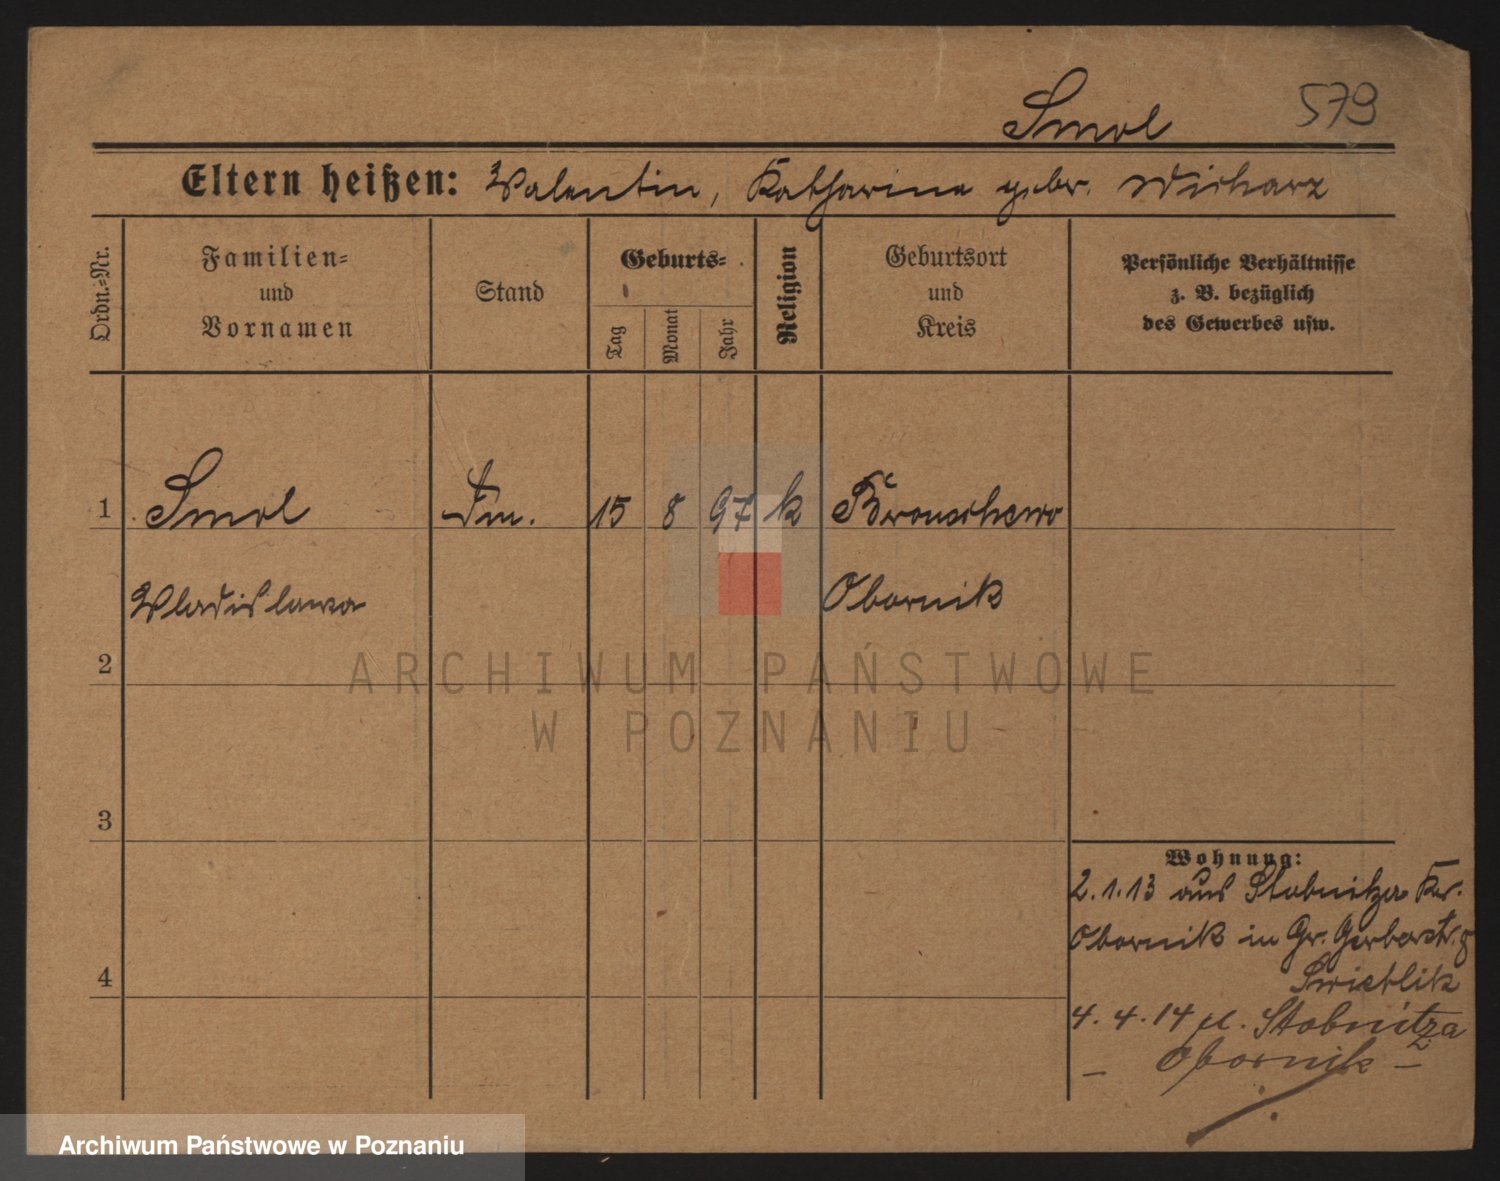 Smol 579
Eltern heißen: Valentin, Katharina gebr. Wicharz
Ordn.-Nr.
Familien-
und
Vornamen
Stand
Geburts-
Tag
Monat
Jahr
Religion
Geburtsort
und
Kreis
Persönliche Verhältnisse
z. B. bezüglich
des Gewerbes usw.
1 Smol 15 8 97 k
Wladislawa Obornik
2
3
4
Wohnung:
2.1.13 aus Stobnitza Kr.
Obornik in Gr. Gerberstr. 8
Swietlik
4.4.14 Stobnitza
– Obornik –
ARCHIWUM PAŃSTWOWE
W POZNANIU
Archiwum Państwowe w Poznaniu